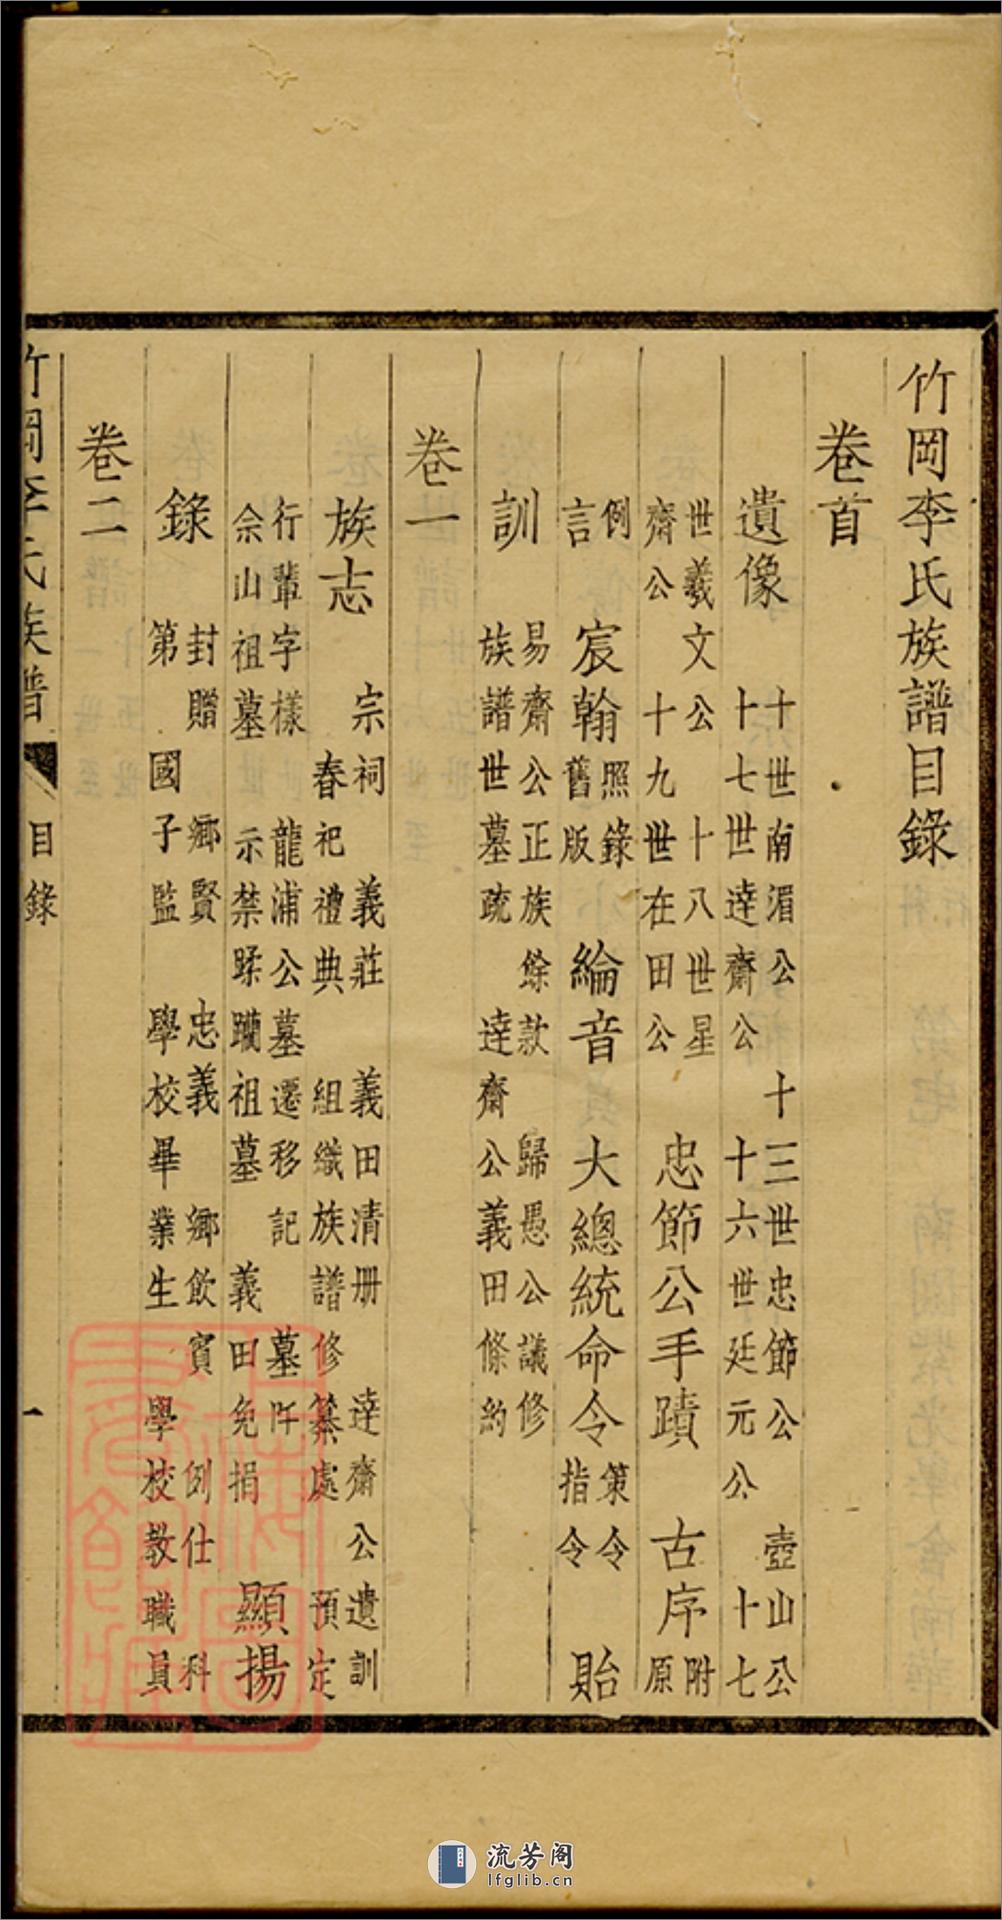 竹岡李氏族譜目錄
卷首
遺像 十世南湄公 十三世忠節公 壺山公
十七世達齋公 十六世廷元公 十七
世羲文公 十八世星
齋公 十九世在田公 忠節公手蹟 古序 附
原
例
言 宸翰 照錄
舊版 綸音 大總統命令 策令
指令 貽
訓 易齋公正族餘款 歸愚公議修
族譜世墓疏 達齋公義田條約
卷一
族志 宗祠 義莊 義田清册 達齋公遺訓
春祀禮典 組織族譜修纂處 預定
行輩字樣 龍浦公墓遷移記 墓阡
佘山祖墓示禁蹂躪祖墓 義田免捐 顯揚
錄 封贈 鄉賢 忠義 鄉飲賓 例仕 科
第 國子監 學校畢業生 學校教職員
卷二
竹岡李氏族譜 目錄 一
流芳阁
lfglib.cn